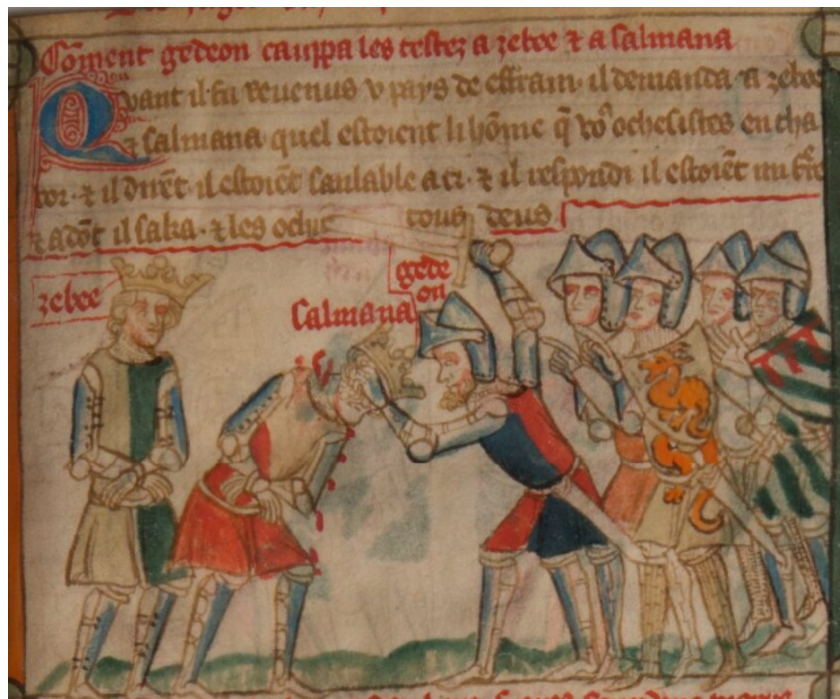 Cōment gedeon caupa les testez a zebee ⁊ a salmana
Quant il fu reuenus v pays de effraim. il demanda a zebee
⁊ salmana. quel estoient li hōme q̄ voꝰ ochesistes en tha
bor. ⁊ il dirēt. il estoiēt sanlable a ti. ⁊ il respondi il estoiēt mi frē
⁊ adōt il saka. ⁊ les ochist tous deus
zebee
salmana
gede
on